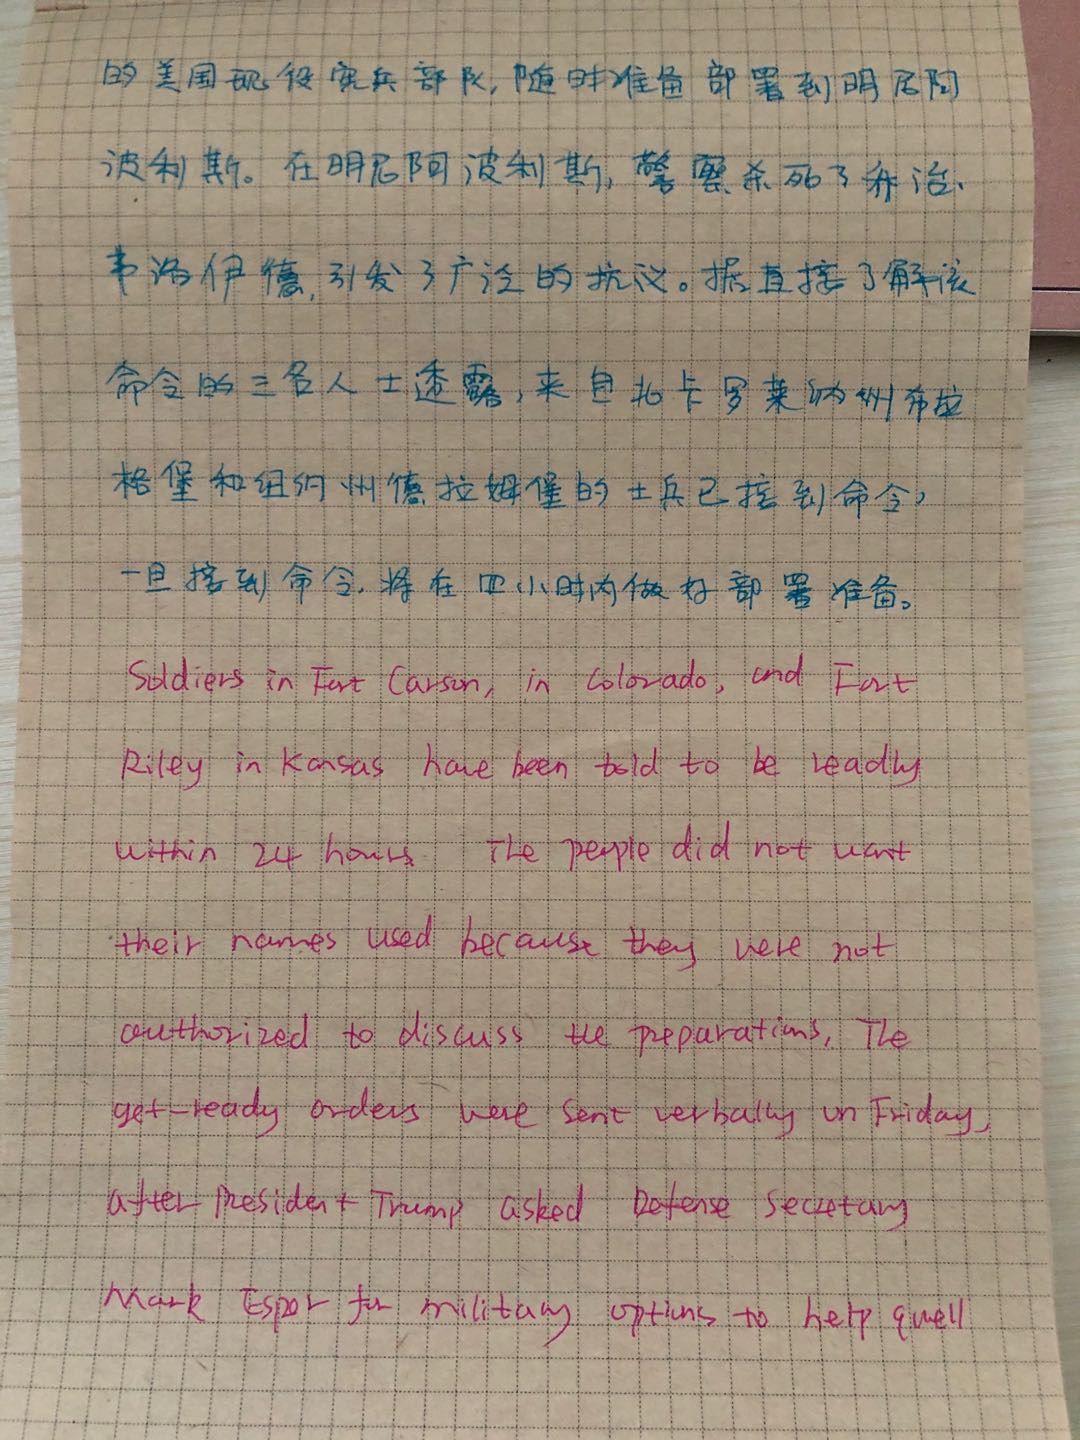 的美国现役宪兵部队,随时准备部署到明尼阿
波利斯。在明尼阿波利斯,警察杀死了乔治、
韦洛伊德,引发了广泛的抗议。据直接了解该
命令的三名人士透露,来自北卡罗莱纳州布拉
格堡和纽约州德拉姆堡的士兵已接到命令,
一旦接到命令,将在四小时内做好部署准备。
Soldiers in Fort Carson, in Colorado, and Fort
Riley in Kansas have been told to be readly
within 24 hours. The people did not want
their names used because they were not
authorized to discuss the preparations. The
get-ready orders were sent verbally on Friday,
after President Trump asked Defense Secretary
Mark Esper for military options to help quell